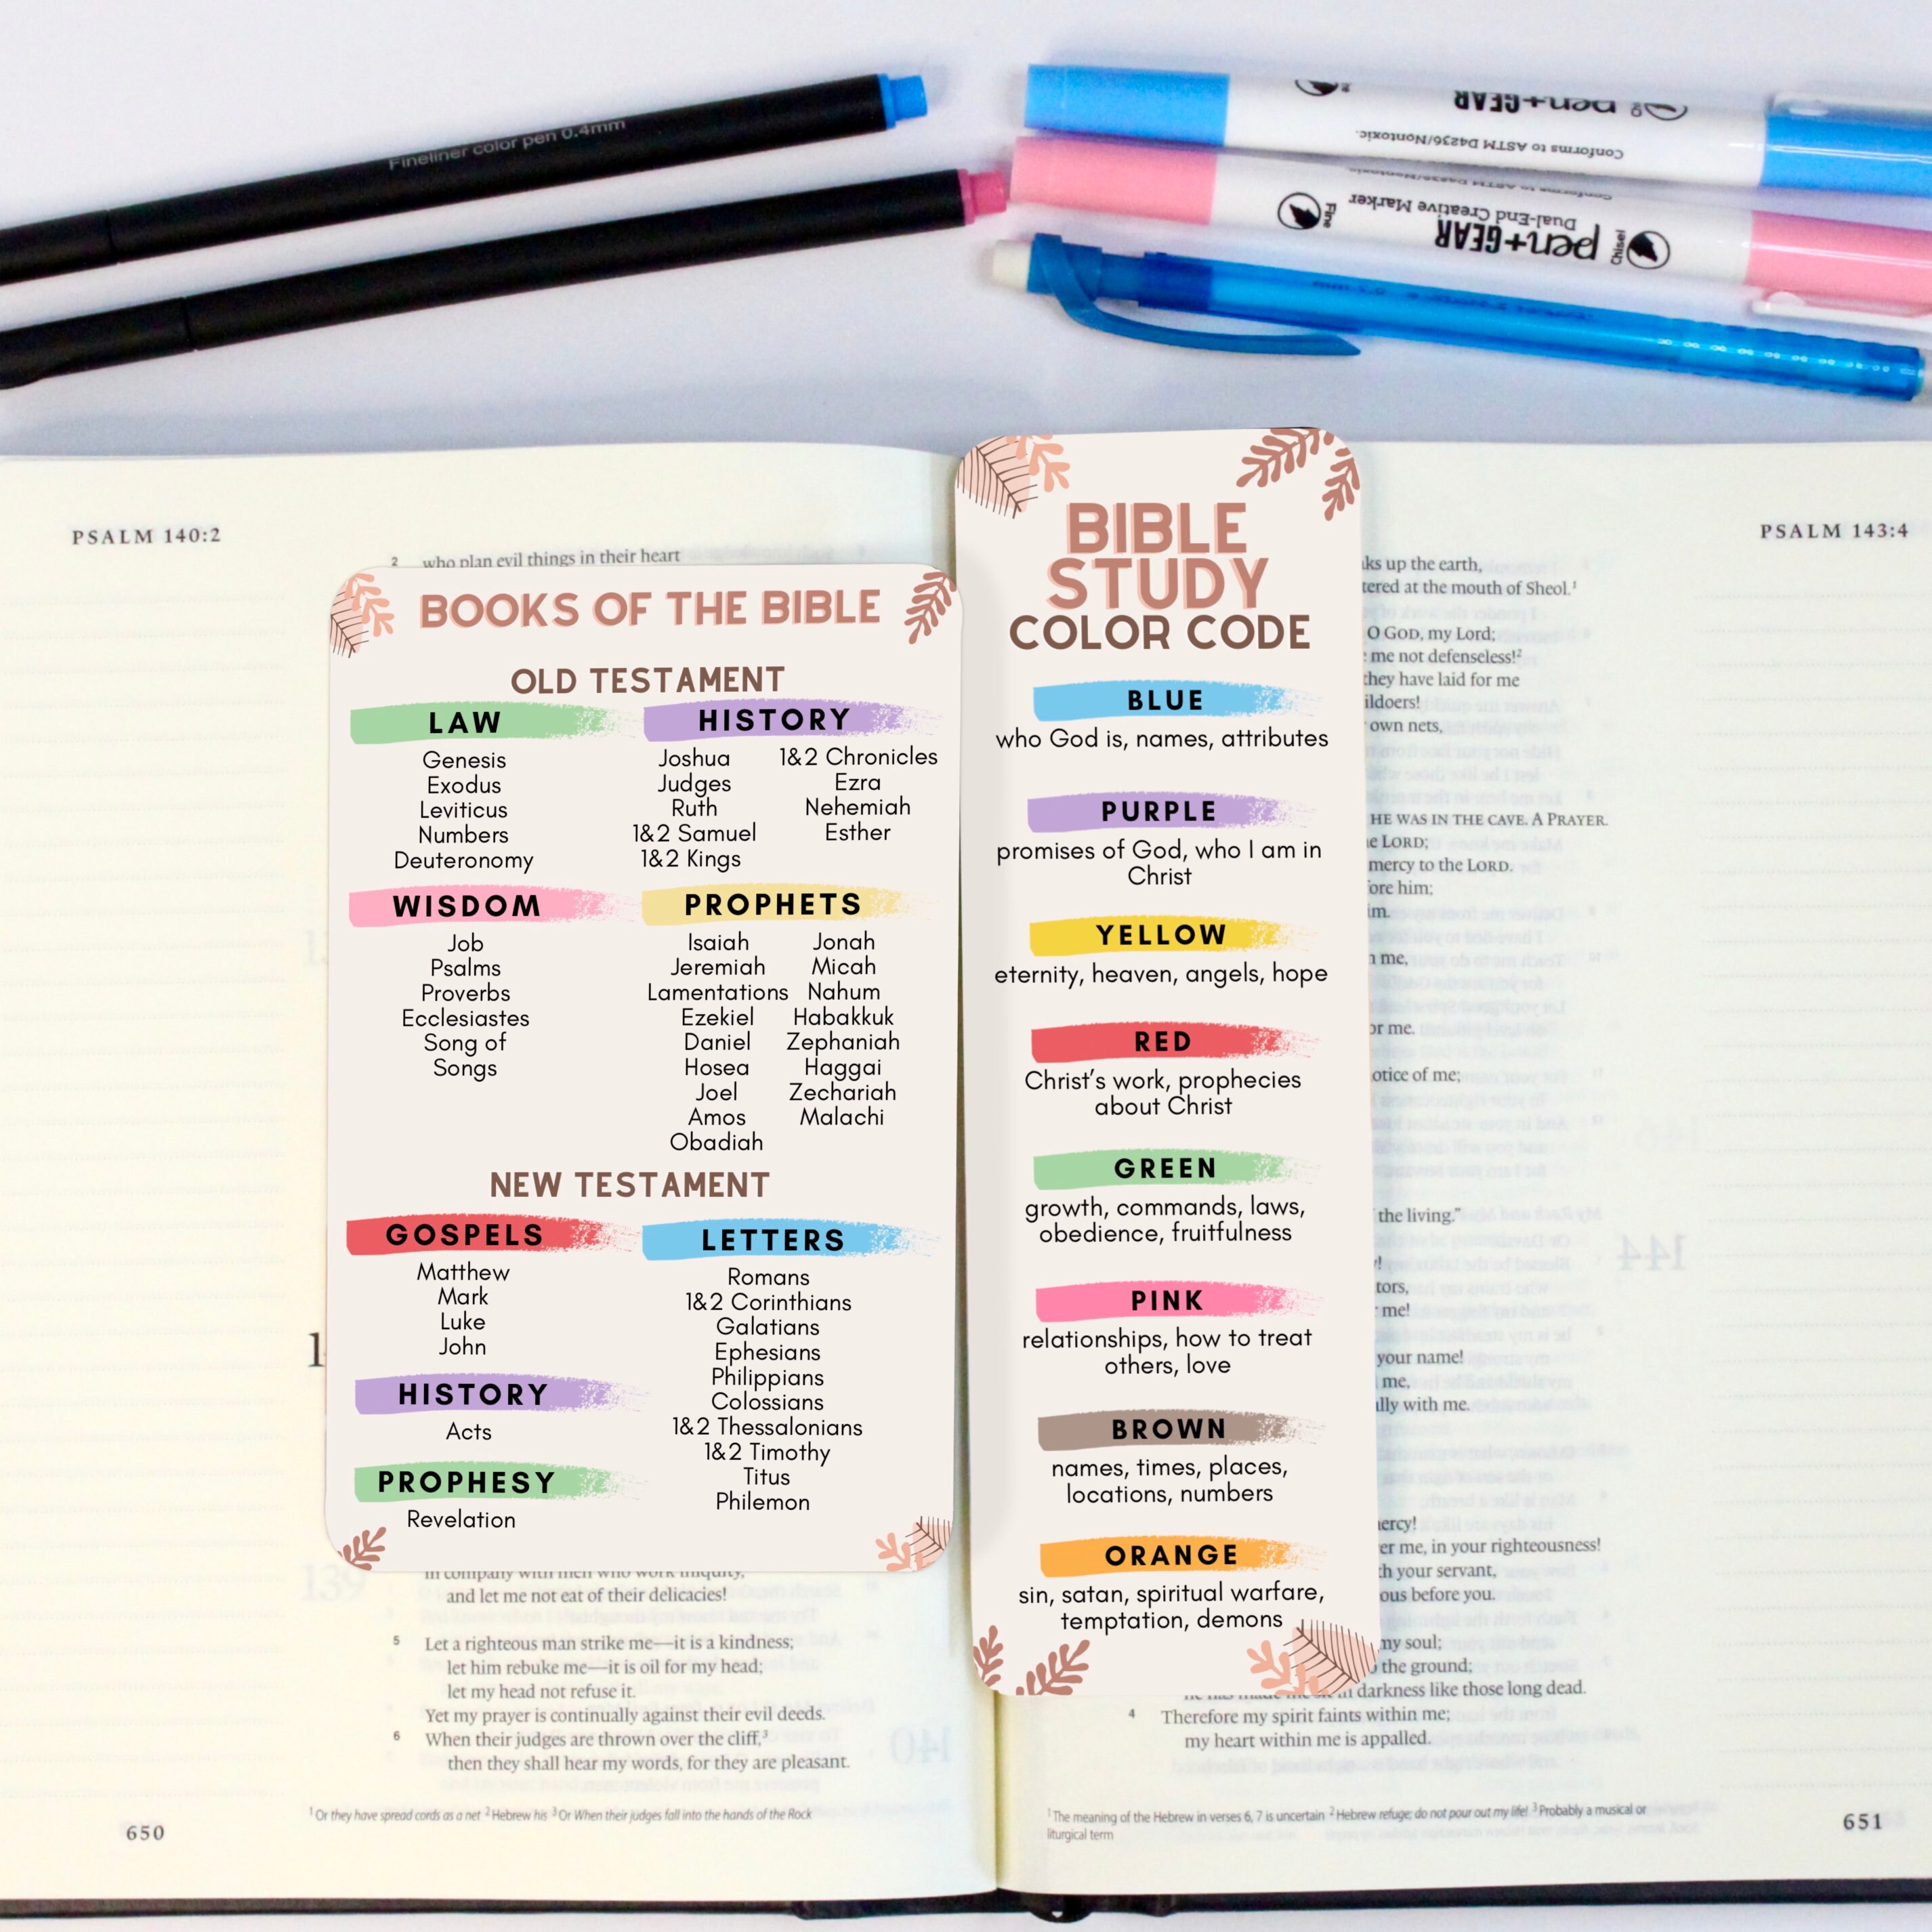 Fineliner color pen 0.4mm
pen+GEAR
Conforms to ASTM D4236/Nontoxic.
Fine
Dual-End Creative Marker
pen+GEAR
Chisel
PSALM 140:2
2 who plan evil things in their heart
BOOKS OF THE BIBLE
OLD TESTAMENT
LAW
Genesis
Exodus
Leviticus
Numbers
Deuteronomy
HISTORY
Joshua
Judges
Ruth
1&2 Samuel
1&2 Kings
1&2 Chronicles
Ezra
Nehemiah
Esther
WISDOM
Job
Psalms
Proverbs
Ecclesiastes
Song of
Songs
PROPHETS
Isaiah
Jeremiah
Lamentations
Ezekiel
Daniel
Hosea
Joel
Amos
Obadiah
Jonah
Micah
Nahum
Habakkuk
Zephaniah
Haggai
Zechariah
Malachi
NEW TESTAMENT
GOSPELS
Matthew
Mark
Luke
John
HISTORY
Acts
PROPHESY
Revelation
LETTERS
Romans
1&2 Corinthians
Galatians
Ephesians
Philippians
Colossians
1&2 Thessalonians
1&2 Timothy
Titus
Philemon
in company with men who work iniquity,
and let me not eat of their delicacies!
5 Let a righteous man strike me—it is a kindness;
let him rebuke me—it is oil for my head;
let my head not refuse it.
Yet my prayer is continually against their evil deeds.
6 When their judges are thrown over the cliff,³
then they shall hear my words, for they are pleasant.
¹ Or they have spread cords as a net ² Hebrew his ³ Or When their judges fall into the hands of the Rock
650
BIBLE
STUDY
COLOR CODE
BLUE
who God is, names, attributes
PURPLE
promises of God, who I am in
Christ
YELLOW
eternity, heaven, angels, hope
RED
Christ's work, prophecies
about Christ
GREEN
growth, commands, laws,
obedience, fruitfulness
PINK
relationships, how to treat
others, love
BROWN
names, times, places,
locations, numbers
ORANGE
sin, satan, spiritual warfare,
temptation, demons
PSALM 143:4
up the earth,
at the mouth of Sheol.¹
O GOD, my Lord;
me not defenseless!²
they have laid for me
own nets,
HE WAS IN THE CAVE. A PRAYER.
LORD;
mercy to the LORD.
him;
me,
me.
notice of me;
the living."
me!
your name!
me,
with me.
me, in your righteousness!
your servant,
before you.
my soul;
the ground;
in darkness like those long dead.
4 Therefore my spirit faints within me;
my heart within me is appalled.
¹ The meaning of the Hebrew in verses 6, 7 is uncertain ² Hebrew refuge; do not pour out my life! ³ Probably a musical or
liturgical term
651